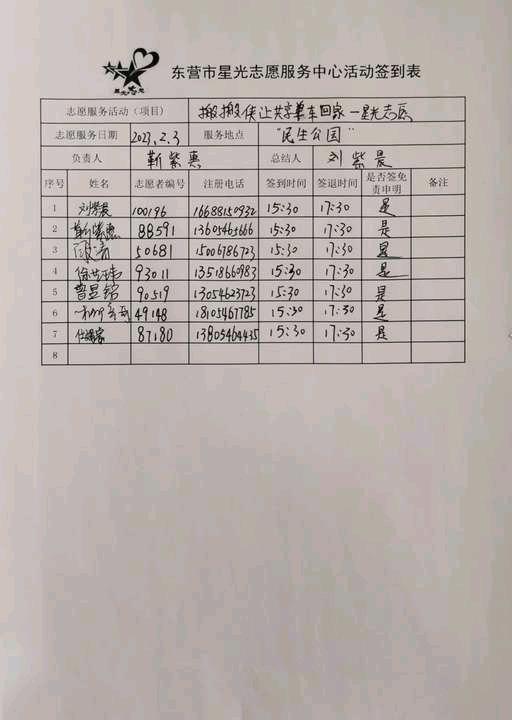 东营市星光志愿服务中心活动签到表
志愿服务活动（项目） 搬搬侠让共享单车回家一星光志愿
志愿服务日期 2023.2.3 服务地点 "民生公园"
负责人 靳紫惠 总结人 刘紫晨
序号 姓名 志愿者编号 注册电话 签到时间 签退时间 是否签免责申明 备注
1 刘紫晨 100196 16688150932 15:30 17:30 是
2 靳紫惠 88591 13605465666 15:30 17:30 是
3 50681 15006786723 15:30 17:30 是
4 93011 13518660983 15:30 17:30 是
5 曾显铭 90519 13054623723 15:30 17:30 是
6 49148 18105467785 15:30 17:30 是
7 87180 13805464435 15:30 17:30 是
8